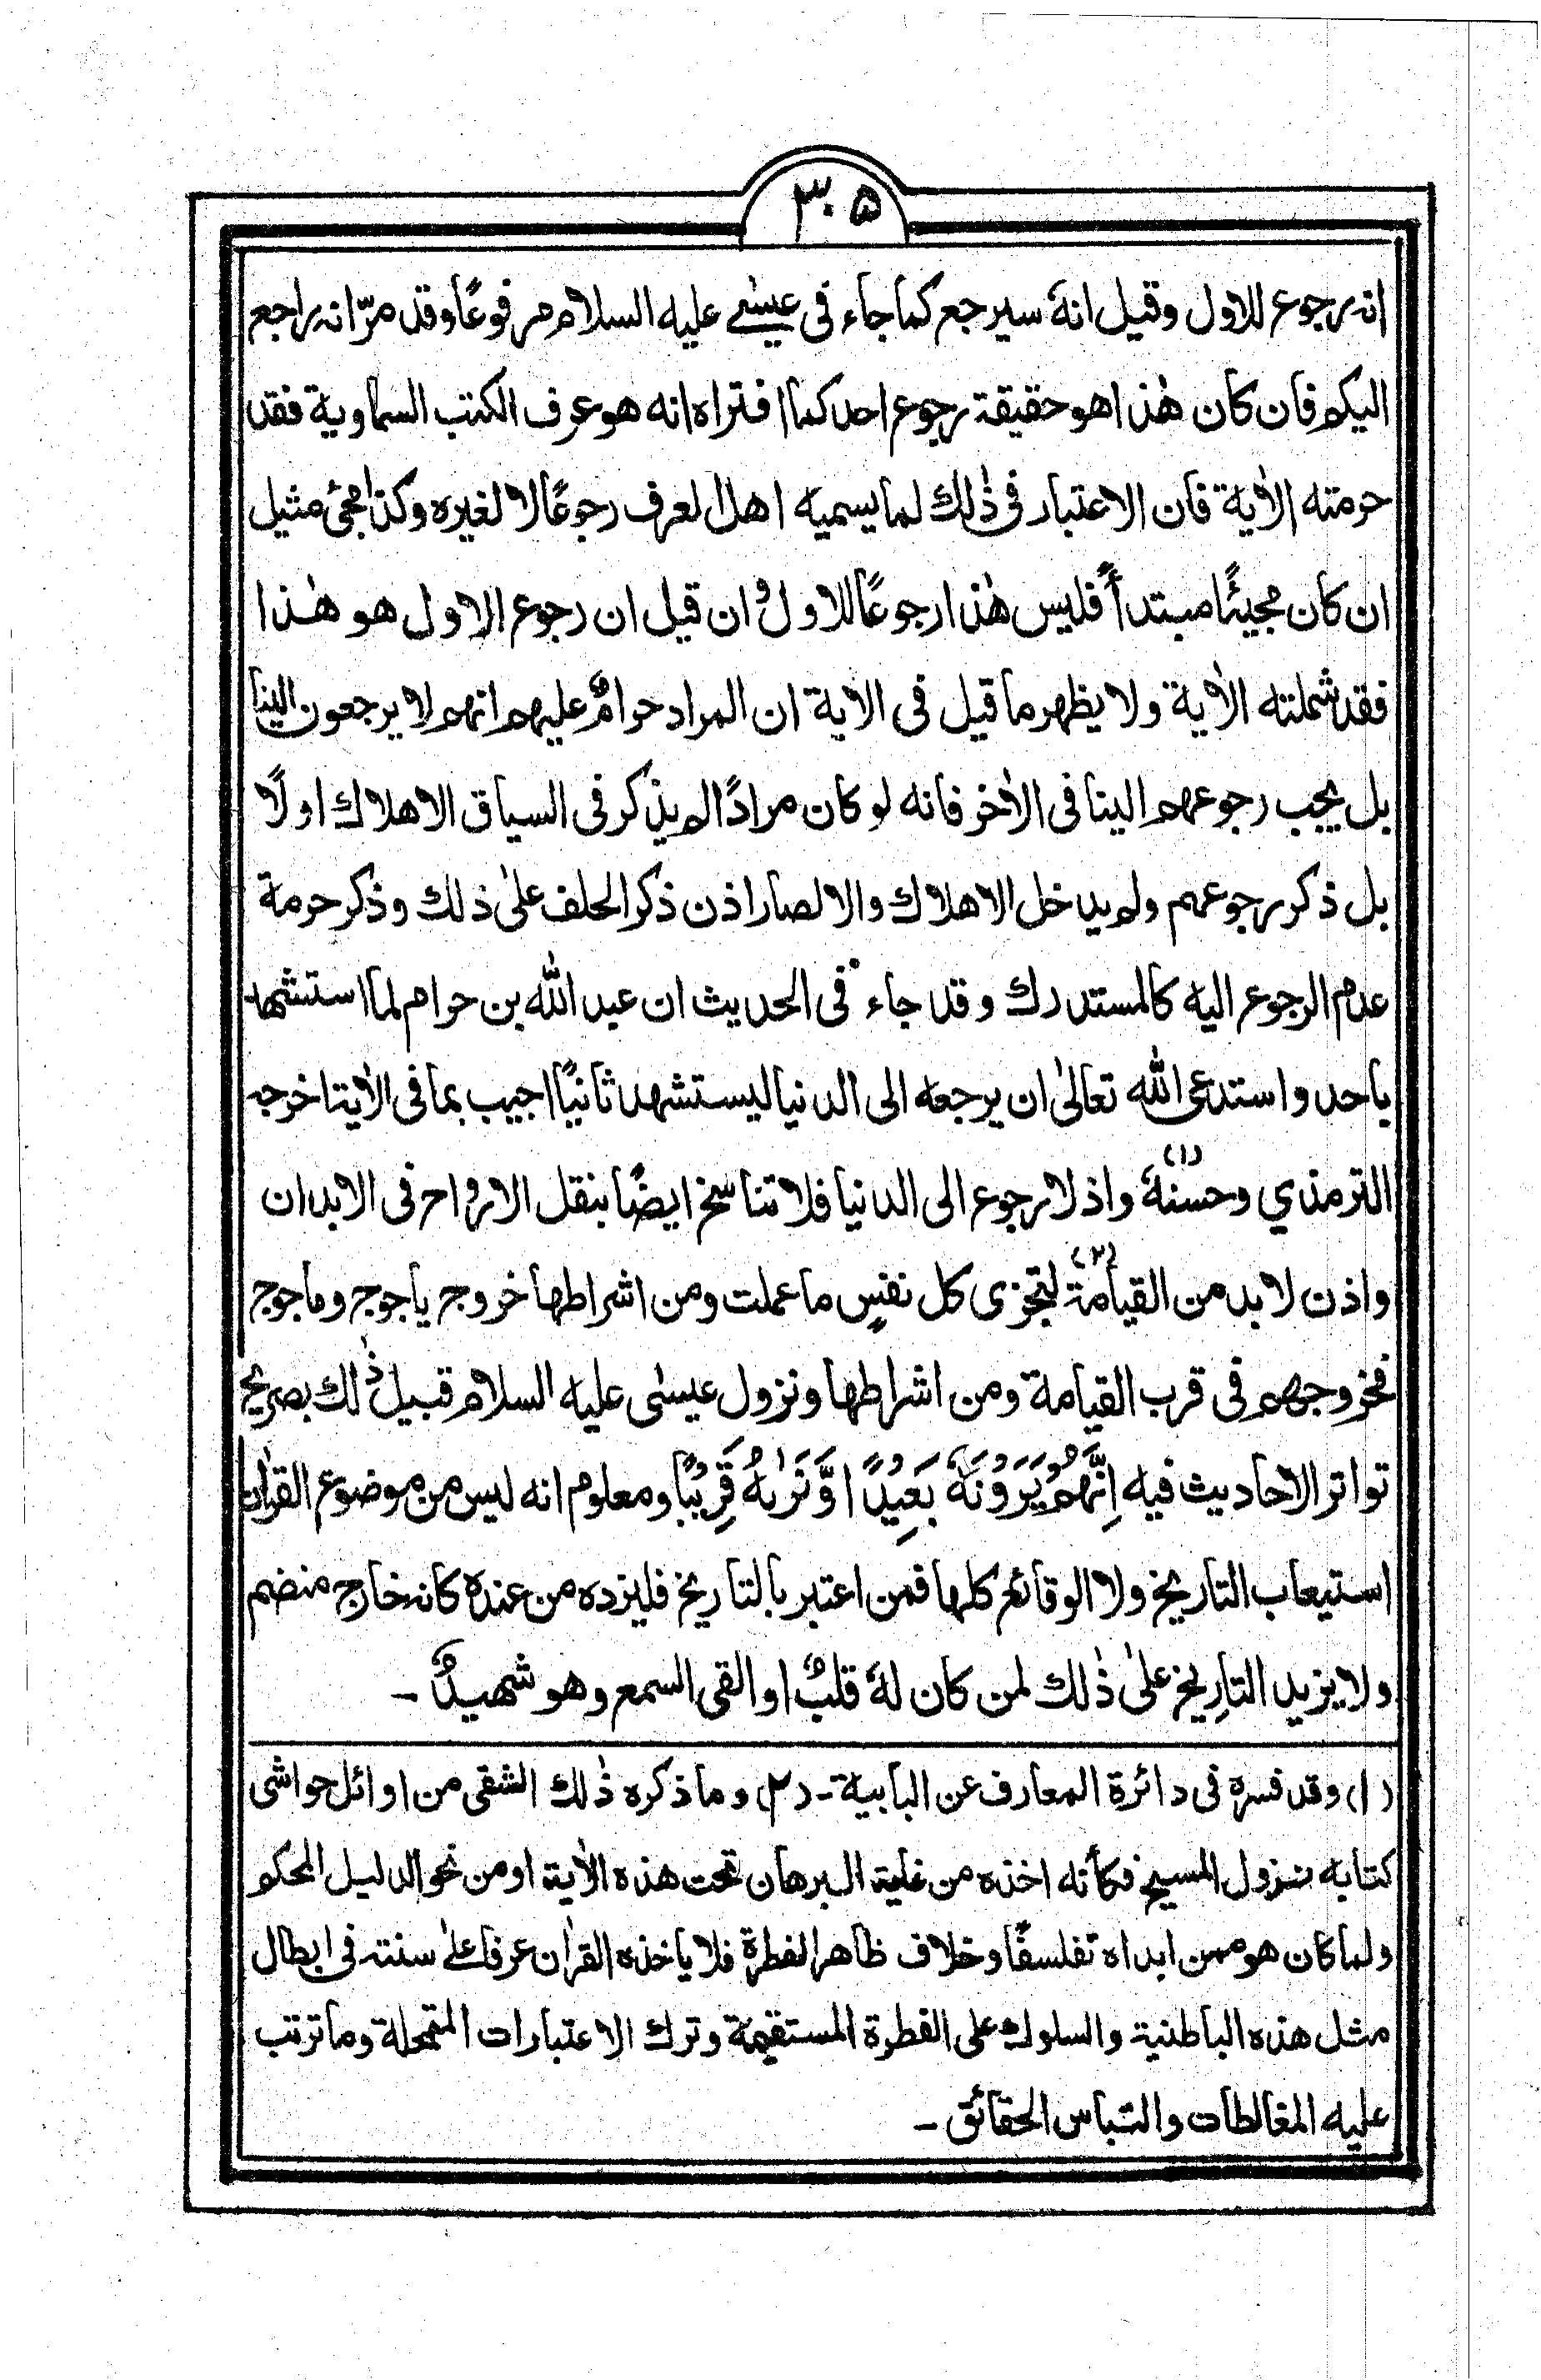 ٣٠٥
انه رجوع للاول وقيل انهٗ سيرجع كما جاء فى عيسٰى عليه السلام مرفوعًا وقد مرّ انه راجع
اليكم فان كان هٰذا هو حقيقة رجوع احد كما افتراه انه هو عرف الكتب السماوية فقد
حرمته الاٰية فان الاعتبار فى ذٰلك لما يسميه اهل العرف رجوعًا لا لغيره وكذا مجئ مثيل
ان كان مجيئًا مبتدأً فليس هٰذا رجوعًا للاول وان قيل ان رجوع الاول هو هٰذا
فقد شملته الاٰية ولا يظهر ما قيل فى الاية ان المراد حرامٌ عليهم انهم لا يرجعون الينا
بل يجب رجوعهم الينا فى الاٰخر فانه لو كان مرادًا لم يذكر فى السياق الاهلاك اولًا
بل ذكر رجوعهم ولم يدخل الاهلاك والا لصار اذن ذكر الحلف علىٰ ذلك وذكر حرمة
عدم الرجوع اليه كالمستدرك وقد جاء فى الحديث ان عبد الله بن حرام لما استشهد
باحد واستدعى الله تعالىٰ ان يرجعه الى الدنيا ليستشهد ثانيًا اجيب بما فى الاٰية اخرجه
الترمذي وحسنهٗ (١) واذ لا رجوع الى الدنيا فلا تناسخ ايضًا بنقل الارواح فى الابدان
واذن لا بد من القيامة (٢) لتجزى كل نفسٍ ما عملت ومن اشراطها خروج ياجوج وماجوج
فخروجهم فى قرب القيامة ومن اشراطها ونزول عيسٰى عليه السلام قبيل ذٰلك بصريح
تواتر الاحاديث فيه اِنَّهُمْ يَرَوْنَهٗ بَعِيْدًا وَّنَرٰىهُ قَرِيْبًا ومعلوم انه ليس من موضوع القراٰن
استيعاب التاريخ ولا الوقائع كلها فمن اعتبر بالتاريخ فليزده من عنده كانه خارج منضم
ولا يزيد التاريخ علىٰ ذٰلك لمن كان لهٗ قلبٌ او القى السمع وهو شهيدٌ -
(١) وقد فسره فى دائرة المعارف عن البابية - (٢) وما ذكره ذٰلك الشقى من اوائل حواشى
كتابه نزول المسيح فكأنه اخذه من غاية البرهان تحت هذه الاٰية او من نحو الدليل المحكم
ولما كان هو ممن ابداه تفلسفًا وخلاف ظاهر الفطرة فلا ياخذه القراٰن عرفك علىٰ سنته فى ابطال
مثل هذه الباطنية والسلوك على الفطرة المستقيمة وترك الاعتبارات المتمحلة وما ترتب
عليه المغالطات والتباس الحقائق -